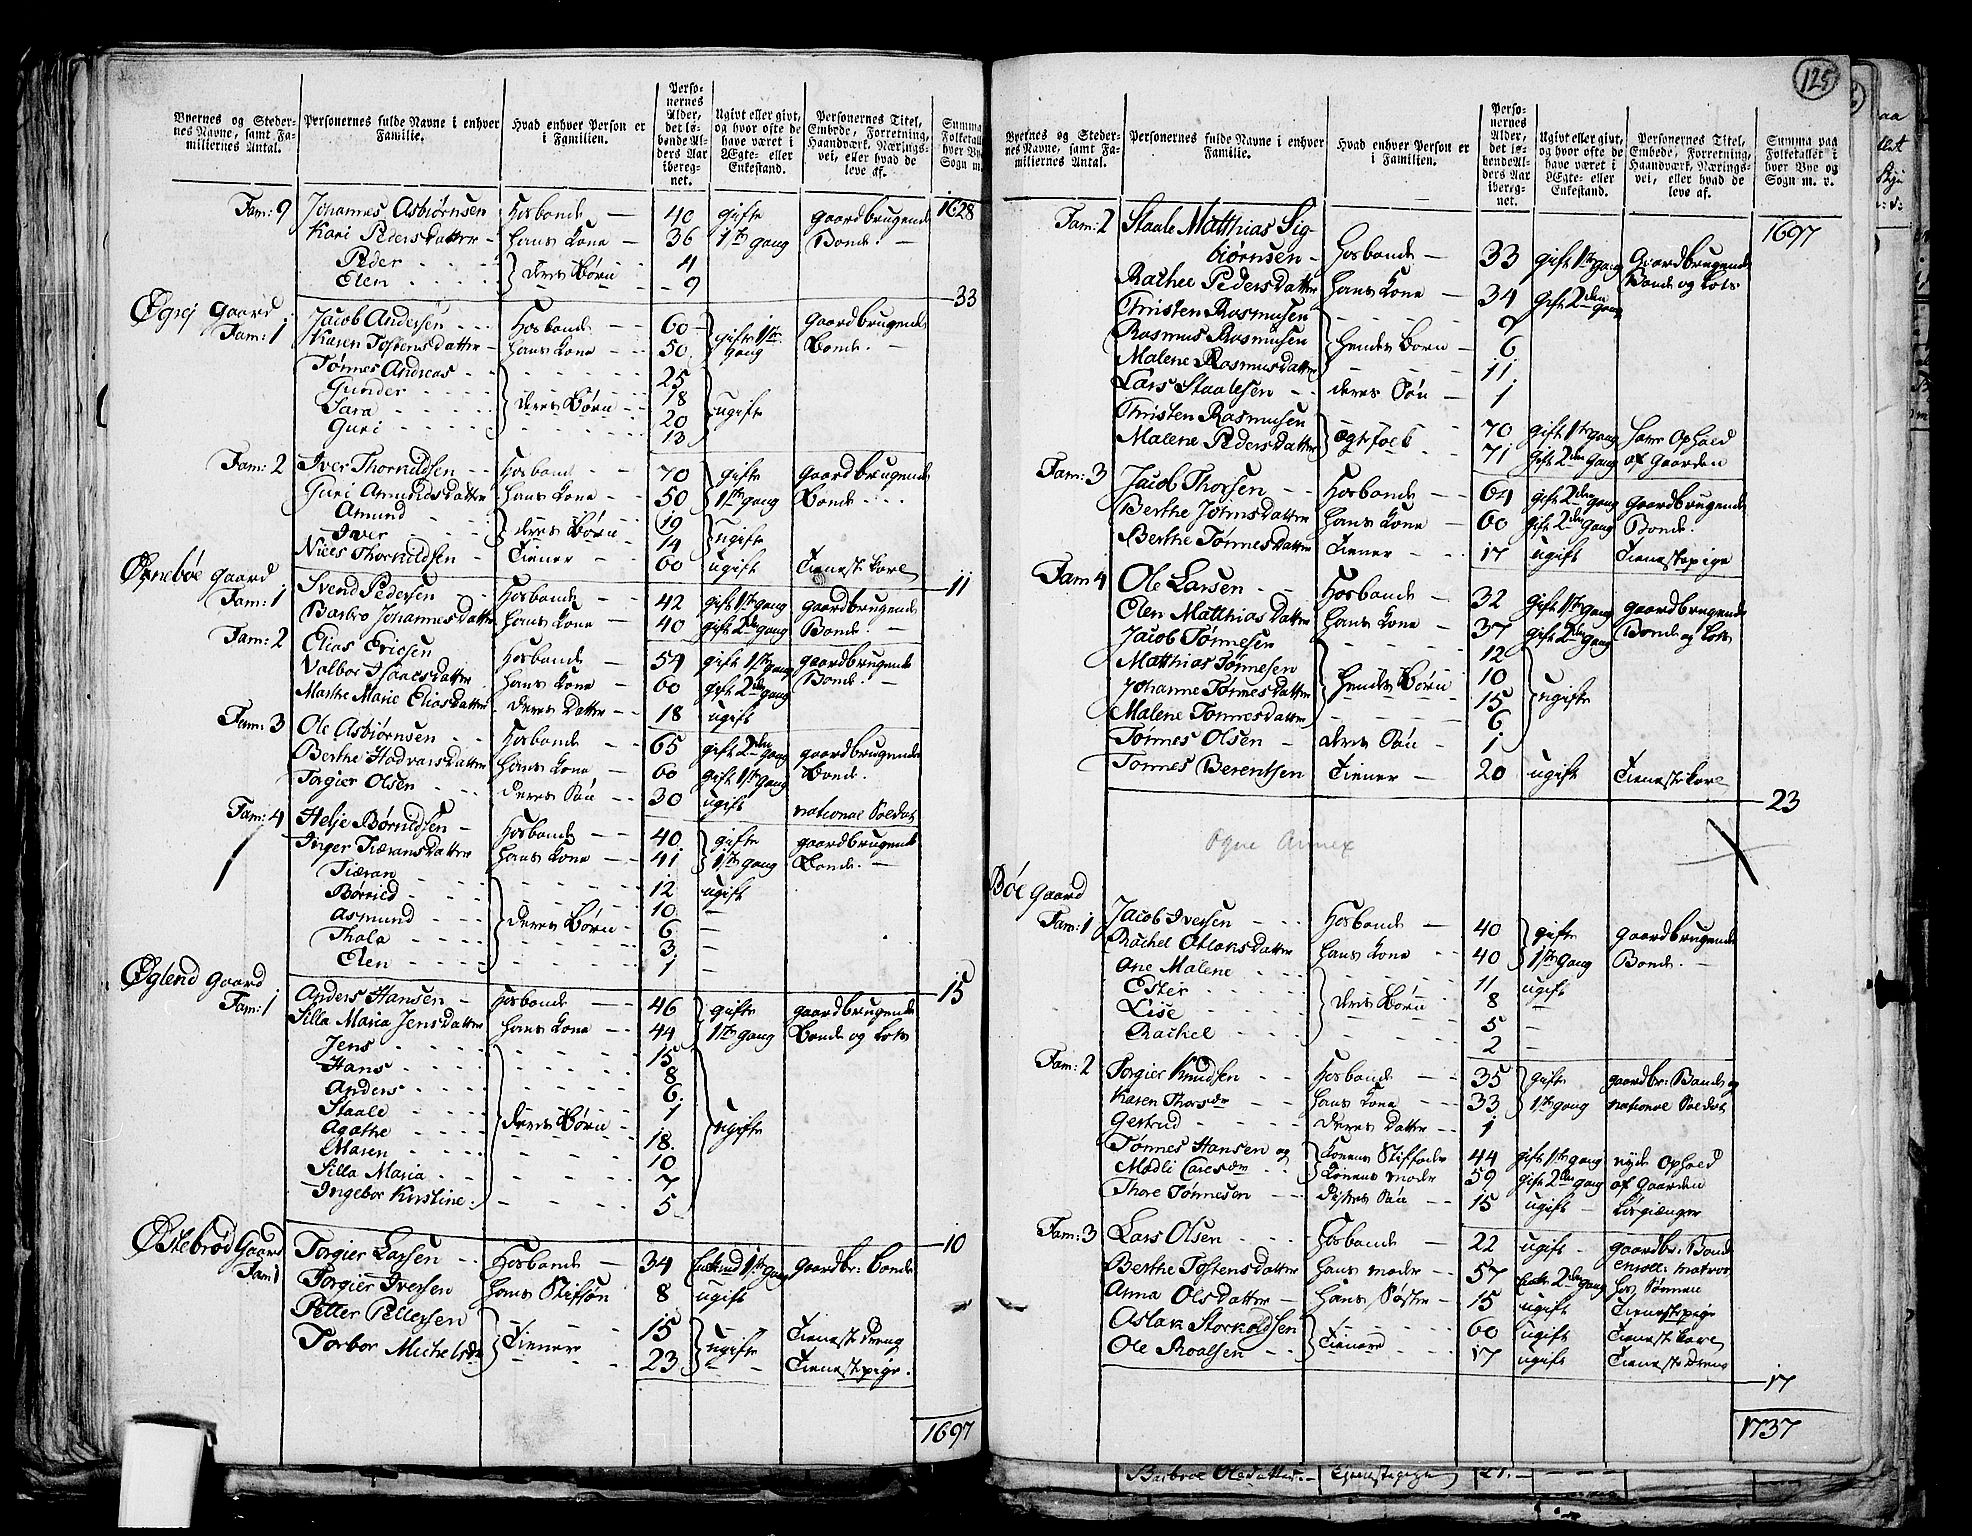 Byernes og Stedernes Navne, samt Familiernes Antal. | Personernes fulde Navne i enhver Familie. | Hvad enhver Person er i Familien. | Personernes Alder, det løbende Alders Aar iberegnet. | Ugivt eller givt, og hvor ofte de have været i Ægte- eller Enkestand. | Personernes Titel, Embede, Forretning, Haandværk, Næringsvei, eller hvad de leve af. | Summa Folketallet hver Bye Sogn m.
Fam: 9 Johannes Asbiørnsen Hosbonde 40 gifte gaardbrugende 1628
Kari Pedersdatter hans Kone 36 1ste gang Bonde.
Peder 4
Elen deres Børn 9
33
gaard
Fam: 1 Jacob Andersen Hosbonde 60 gifte 1ste gaardbrugende
Karen Tostensdatter hans Kone 50 gang Bonde.
Tønnes Andreas 25
Gunder 18
Sara deres Børn 20 ugifte
Guri 13
Fam: 2 Iver Thornildsen Hosbonde 70 gifte gaardbrugende
Guri Amundsdatter hans Kone 50 1ste gang Bonde
Amund 19
Iver deres Børn 14 ugifte
Niels Thornildsen Tiener 60 ugift Tienestekarl
11
Ørnebøe gaard
Fam: 1 Svend Pedersen Hosbonde 42 gift 1ste gang gaardbrugende
Barbro Johannesdatter hans Kone 40 gift 2den gang Bonde.
Fam: 2 Elias Ericsen Hosbonde 54 gift 1ste gang gaardbrugende
Valbor Isaacsdatter hans Kone 60 gift 2den gang Bonde.
Marthe Marie Eliasdatter deres datter 18 ugift
Fam: 3 Ole Asbiørnsen Hosbonde 65 gift 2den gang gaardbrugende
Berthe Hadvarsdatter hans Kone 60 gift 1ste gang Bonde.
Torgier Olsen deres Søn 30 ugift national Soldat
Fam: 4 Helje Børnildsen Hosbonde 40 gifte gaardbrugende
Inger Tiæransdatter hans Kone 41 1ste gang Bonde.
Tiæran 12 ugift
Børnild 10 —
Asmund deres Børn 6 —
Thala 3 —
Elen 1 —
15
Øglend gaard
Fam: 1 Anders Hansen Hosbonde 46 gifte gaardbrugende
Silla Maria Jensdatter hans Kone 44 1ste gang Bonde og Lots
Jens 15
Hans 8
Anders 6
Staale deres Børn 1 ugifte
Agathe 18
Maren 10
Silla Maria 7
Ingebor Kirstine 5
10
Østebrød gaard
Fam: 1 Torgier Larsen Hosbonde 34 1ste gang gaardbr: Bonde
Torgier Iversen hans Stifsøn 8 ugift
Petter Pettersen 15 Tienestedreng
Torbor Michelsdr Tienere 23 ugifte Tienestepige.
1697
125
Byernes og Stedernes Navne, samt Familiernes Antal. | Personernes fulde Navne i enhver Familie. | Hvad enhver Person er i Familien. | Personernes Alder, det løbende Alders Aar iberegnet. | Ugivt eller givt, og hvor ofte de have været i Ægte- eller Enkestand. | Personernes Titel, Embede, Forretning, Haandværk, Næringsvei, eller hvad de leve af. | Summa paa Folketallet i hver Bye og Sogn m. v.
1697
Fam: 2 Staale Matthias Sigbiørnsen Hosbonde 33 gift 1ste gang Gaardbrugende
Rachel Pedersdatter hans Kone 34 gift 2den gang Bonde og Lots
Christen Rasmusen 9
Rasmus Rasmusen hendes Børn 6
Malene Rasmusdatter 11
Lars Staalesen deres Søn 1
Christen Rasmusen 70 gift 1ste gang have Ophold
Malene Pedersdatter Egtefolk 71 gift 2den gang af gaarden
Fam: 3 Jacob Thorsen Hosbonde 64 gift 2den gang gaardbrugende
Berthe Johnsdatter hans Kone 60 gift 2den gang Bonde.
Berthe Tønnesdatter Tiener 17 ugift Tienestepige
Fam 4 Ole Larsen Hosbonde 32 gift 1ste gang gaardbrugende
Elen Matthiasdatter hans Kone 37 gift 2den gang Bonde og Lots
Jacob Tønnesen 12
Matthias Tønnesen 10
Johanne Tønnesdatter hendes Børn 15 ugifte
Malene Tønnesdatter 6
Tønnes Olsen deres Søn 1
Tønnes Berentsen Tiener 20 ugift Tienestekarl
23
Ogne Annex
Bøe gaard
Fam: 1 Jacob Iversen Hosbonde 40 gifte gaardbrugende
Rachel Atlaksdatter hans Kone 40 1ste gang Bonde.
Ane Malene 11 ugift
Ester 8
Lise deres Børn 5 —
Rachel 2 —
Fam: 2 Torgier Knudsen Hosbonde 35 gifte gaardbr: Bonde og
Karen Thorsdr hans Kone 33 1ste gang national Soldat
Gertrud deres datter 1
Tønnes Hansen og Konens Stiffader 44 gift 1ste gang nyde Ophold
Madli Larsdr Konens Moder 59 gift 2den gang af Gaarden
Thore Tønneson disses Søn 15 ugift
Fam: 3 Lars Olsen Hosbonde 22 ugift gaardbr: Bonde
enroll: matros
Berthe Tostensdatter hans moder 57 2den gang hos Sønnen
Anna Olsdatter hans Søster 15 ugift Tienestepige
Aslak Storkoldsen 60 ugift Tienestekarl
Ole Roalsen Tienere 17 ugift Tienestedreng
17
1737